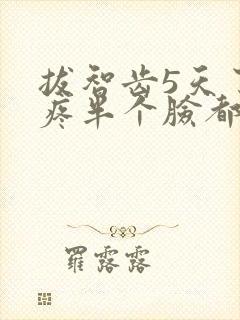 拔智齿5天了
疼半个脸都
羅露露